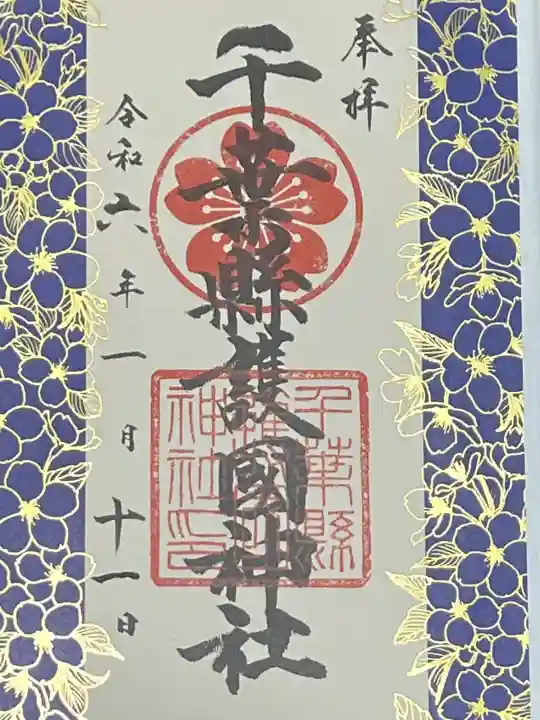 奉拝
千葉縣護國神社
千葉縣
護國
神社印
令和六年一月十一日